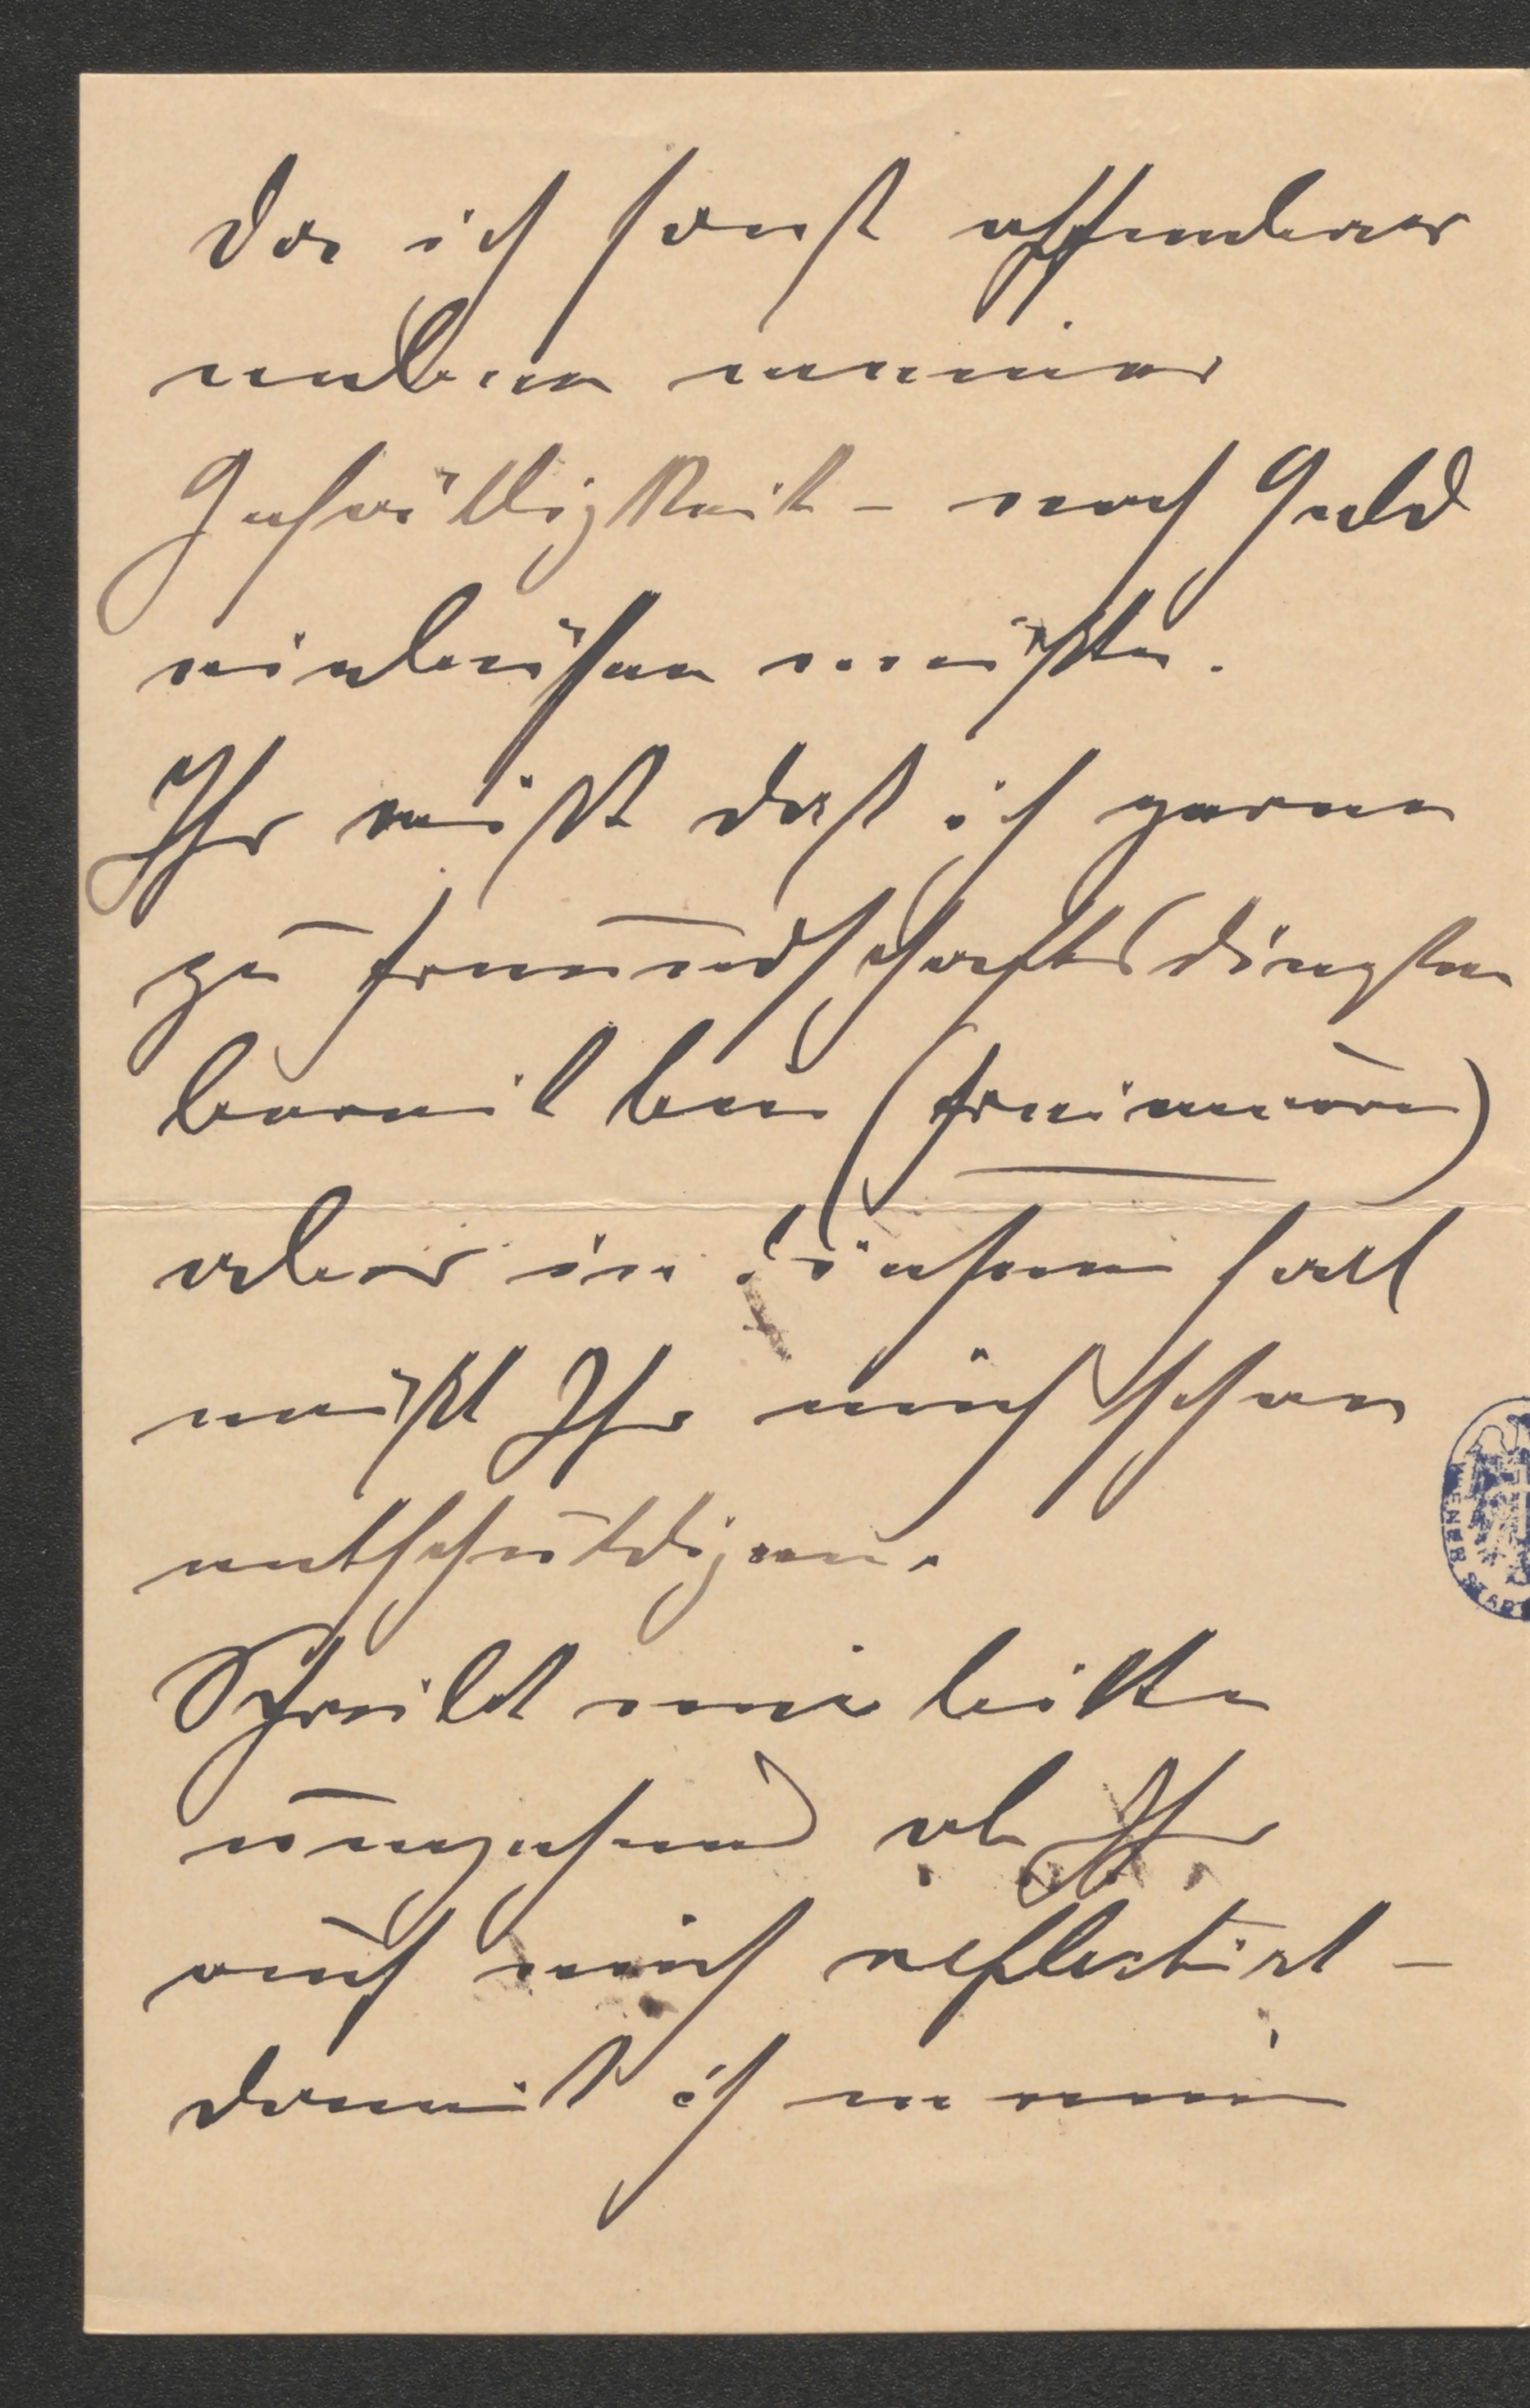 da ich sonst offenbar
neben meiner
Gefälligkeit – noch Geld
einbüßen müßte.
Ihr wißt daß ich gerne
zu freundschaftsdingsten
bereit bin
aber in diesem Fall
müßt Ihr mich schon
entschuldigen.
Schreibt mir bitte
umgehend ob Ihr
auf mich reflectirt –
damit ich meine
WIENER STADT